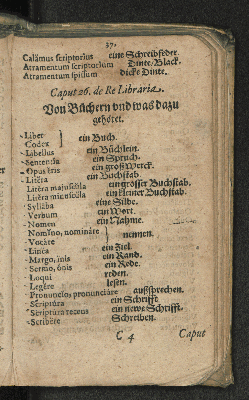 37.
Calămus scriptorius eine Schreibfeder.
Atramentum scriptorium Dinte/Black.
Atramentum spissum dicke Dinte.
Caput 26. de Re Libraria.
Von Büchern vnd was dazu
gehöret.
Liber } ein Buch.
Codex
Libellus ein Büchlein.
Sententia ein Spruch.
Opus ein groß Werck.
Litĕra ein Buchstab
Litĕra majuscŭla ein grösser Buchstab.
Litĕra minuscŭla ein kleiner Buchstab.
Syllăba eine Silbe.
Verbum ein Wort.
Nomen ein Nahme.
Nomĭno, nomināre } nennen.
Vocāre
Linĕa ein Ziel.
Margo, ĭnis ein Rand.
Sermo, ōnis ein Rede.
Loqui reden.
Legĕre lesen.
Pronuncio, pronunciāre außsprechen.
Scriptūra ein Schrifft
Scriptūra recens ein newe Schrifft.
Scribĕre Schreiben.
C 4 Caput